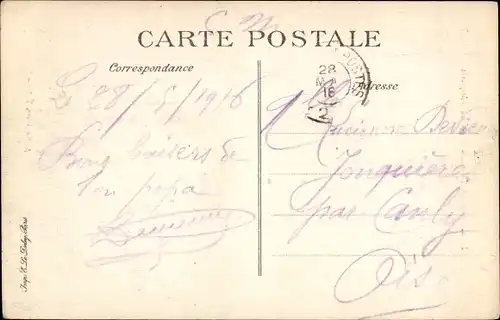 C M
CARTE POSTALE
Correspondance
Adresse
POSTES
28
16
Le 28/5/1916
Bons baisers de
ton papa
Lucienne
Jonquières
par Canly
Oise
Imp. E. Le Deley, Paris